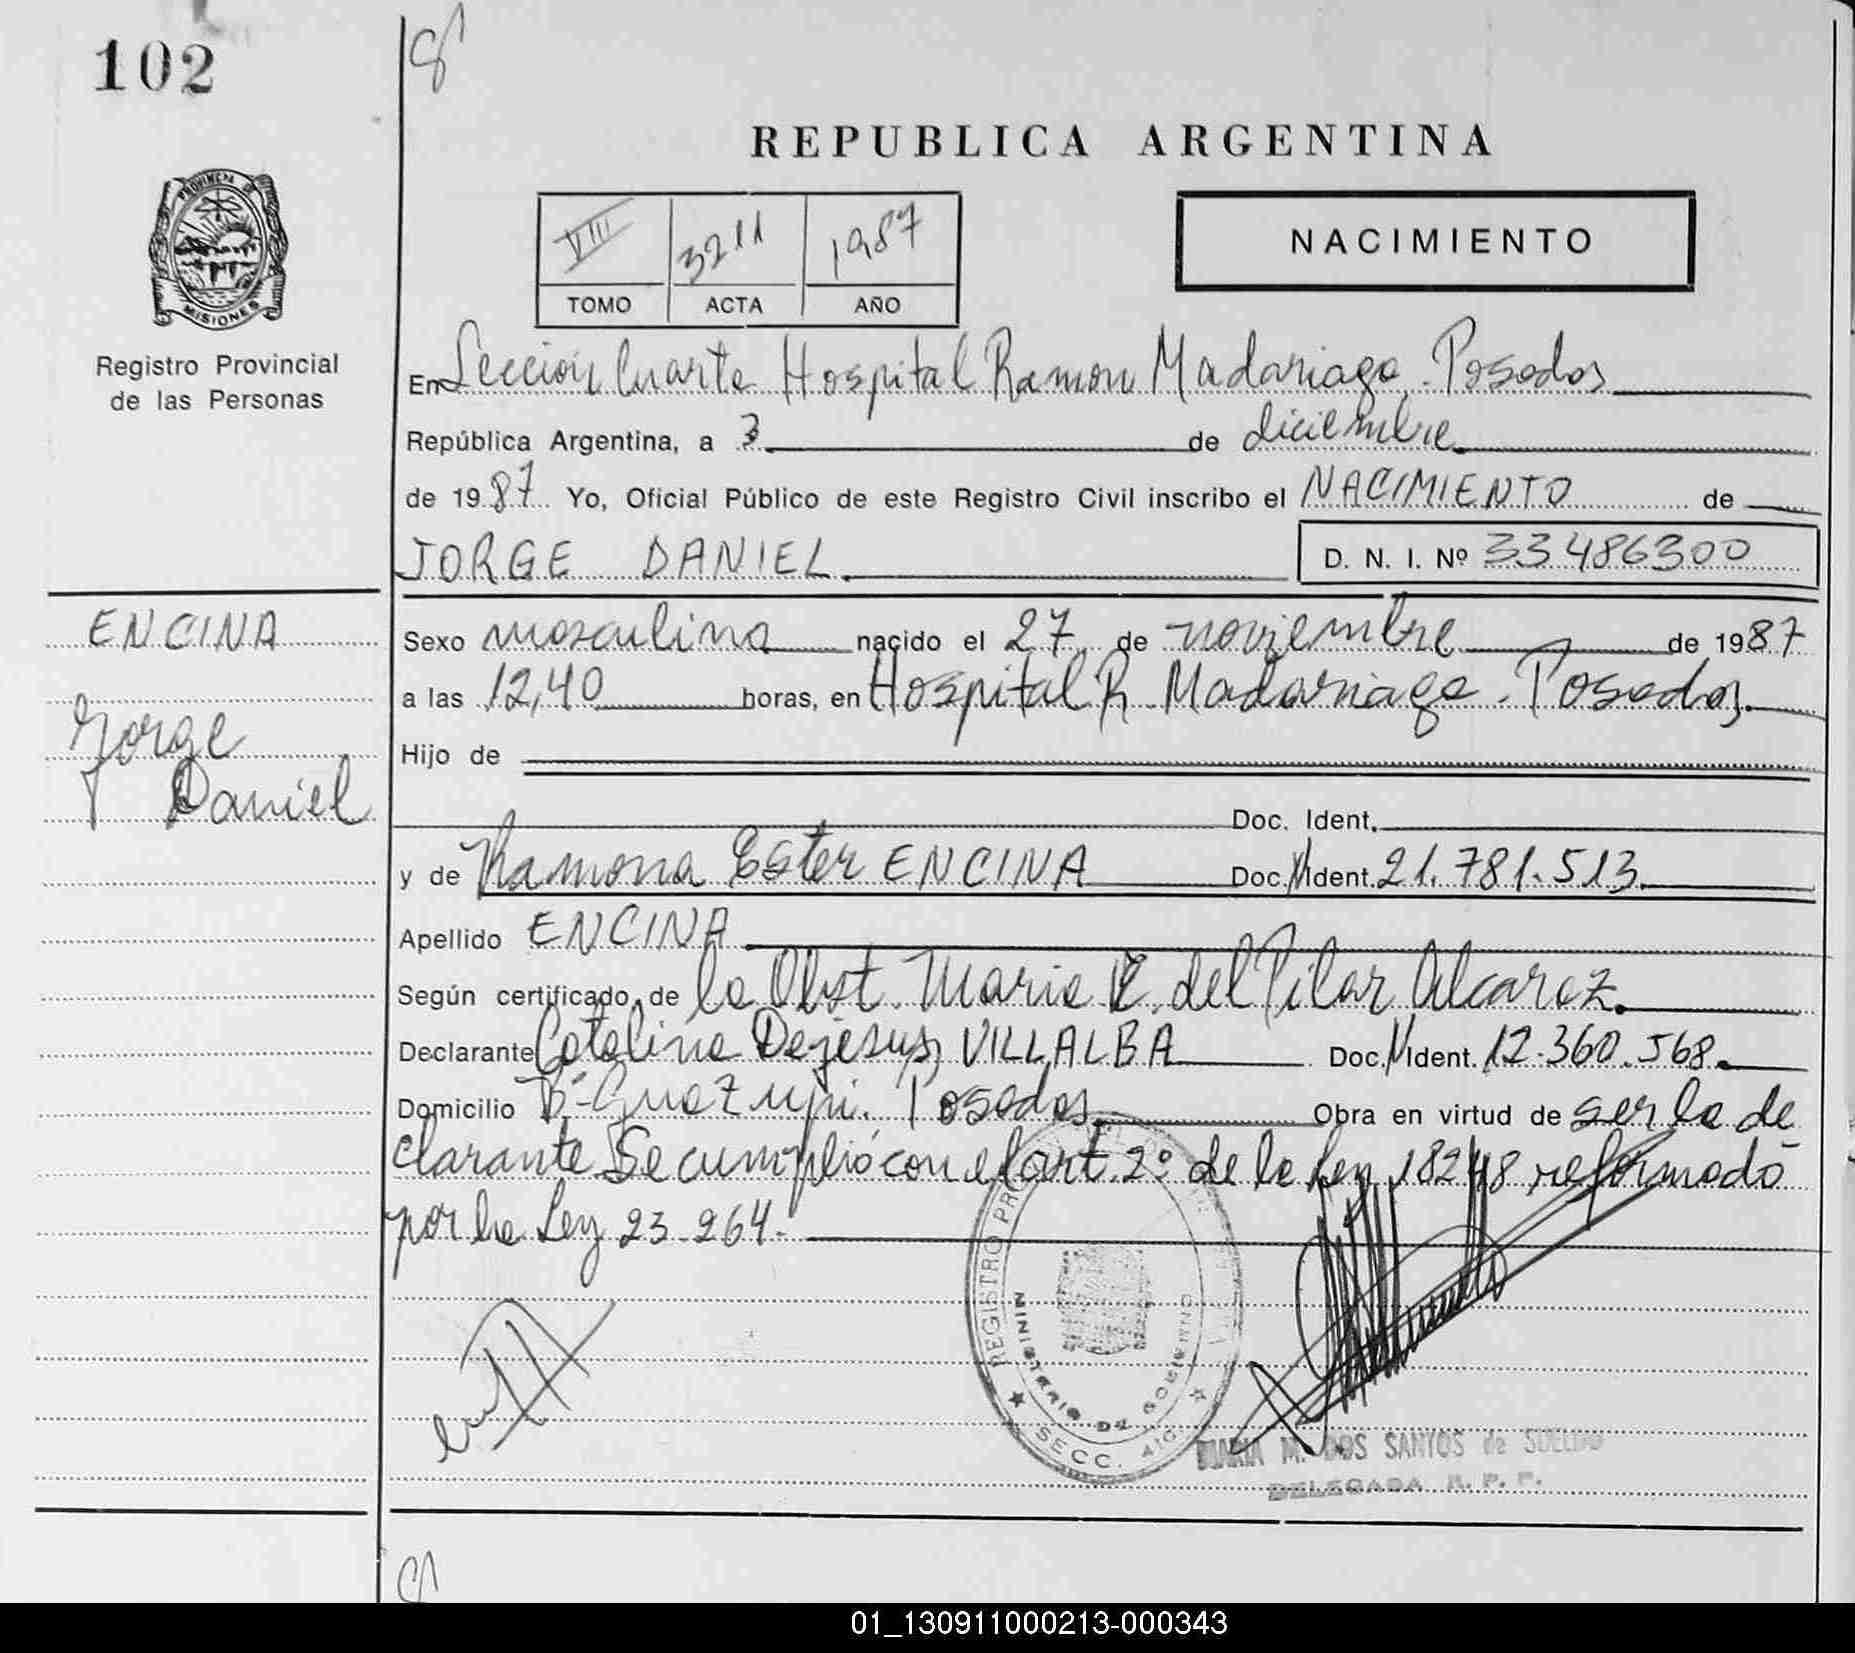 102
REPUBLICA ARGENTINA
PROVINCIA DE
MISIONES
Registro Provincial
de las Personas
VIII 3211 1987
TOMO ACTA AÑO
NACIMIENTO
En Sección Cuarta Hospital Ramon Madariaga. Posadas
República Argentina, a 3 de diciembre
de 1987 Yo, Oficial Público de este Registro Civil inscribo el NACIMIENTO de
JORGE DANIEL D. N. I. Nº 33486300
ENCINA
Jorge
Daniel
Sexo masculino nacido el 27 de noviembre de 1987
a las 12,40 horas, en Hospital R. Madariaga. Posadas.
Hijo de
Doc. Ident.
y de Ramona Ester ENCINA Doc. N Ident. 21.781.513
Apellido ENCINA
Según certificado de la Obst. Maria del Pilar Alcaraz.
Declarante Catalina Dejesus VILLALBA Doc. N Ident. 12.360.568.
Domicilio Bº Guazupi. Posadas Obra en virtud de ser la de
clarante Se cumplió con el art. 2º de la Ley 18248 reformado
por la Ley 23.264.
REGISTRO
MINISTERIO DE GOBIERNO
SECC.
MARIA M. DOS SANTOS de SUELDO
DELEGADA R. P. P.
01_130911000213-000343